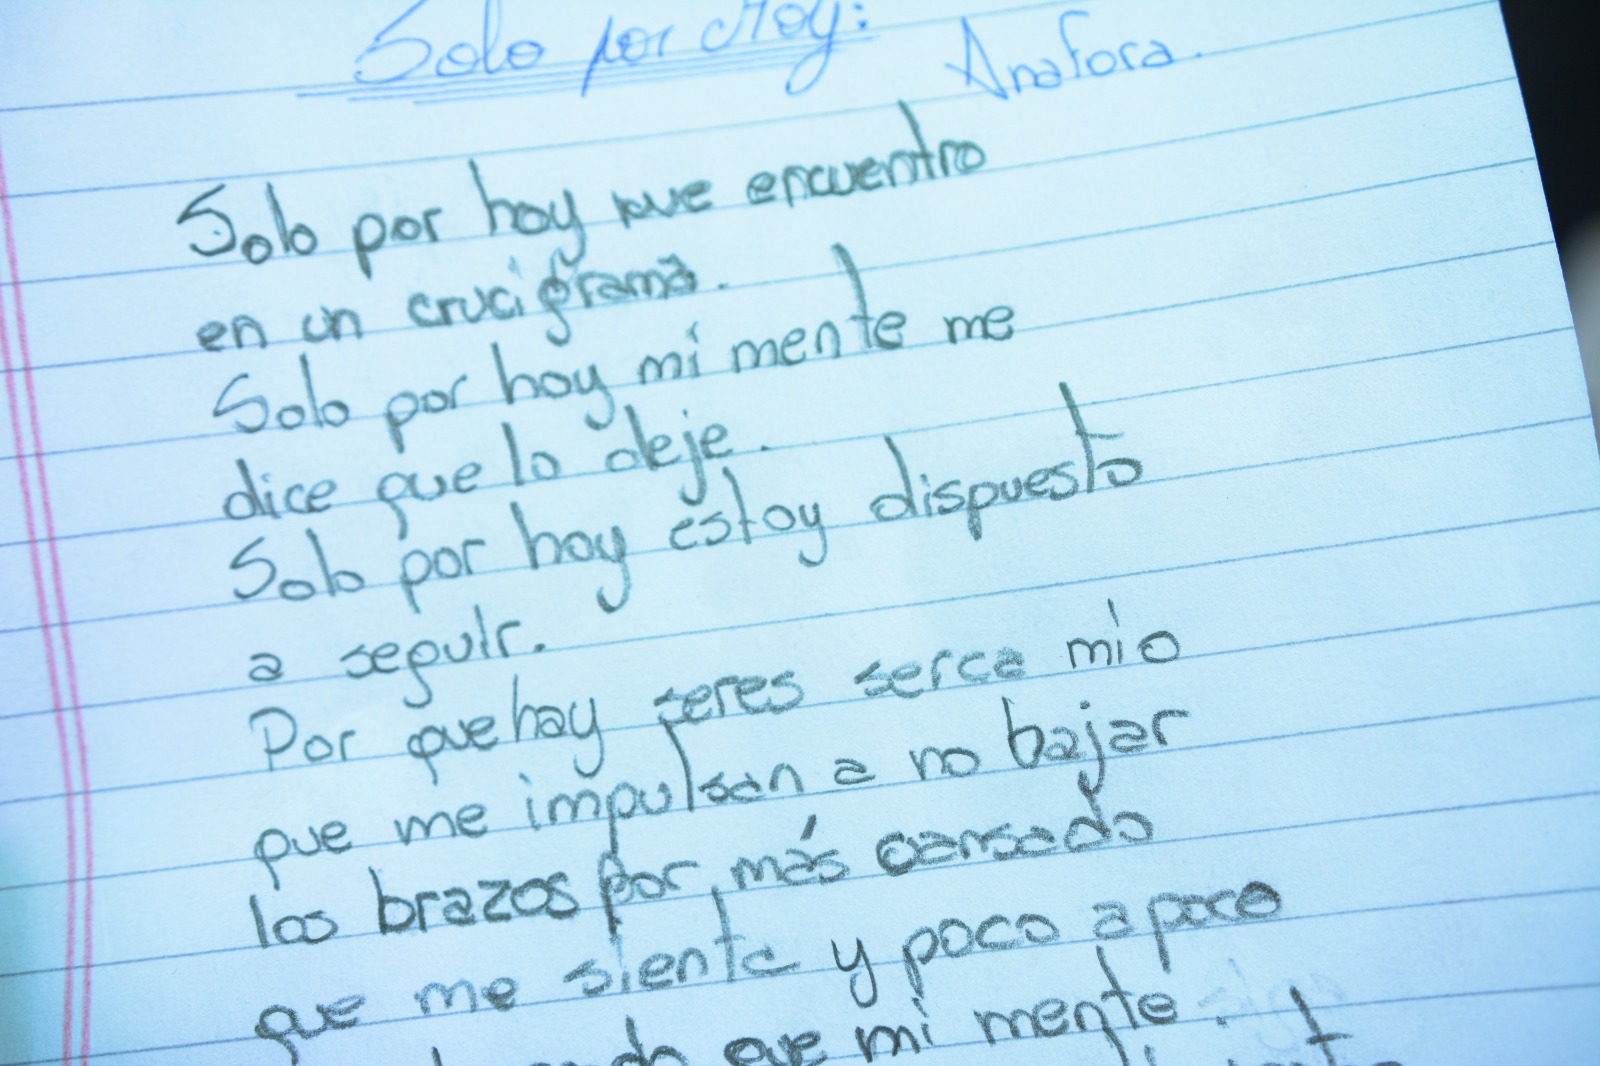 Solo por Hoy: Anafora.
Solo por hoy que encuentro
en un crucigrama.
Solo por hoy mi mente me
dice que lo deje.
Solo por hoy estoy dispuesto
a seguir.
Por que hay seres serca mio
que me impulsan a no bajar
los brazos por más cansado
que me sienta y poco a poco
que mi mente.